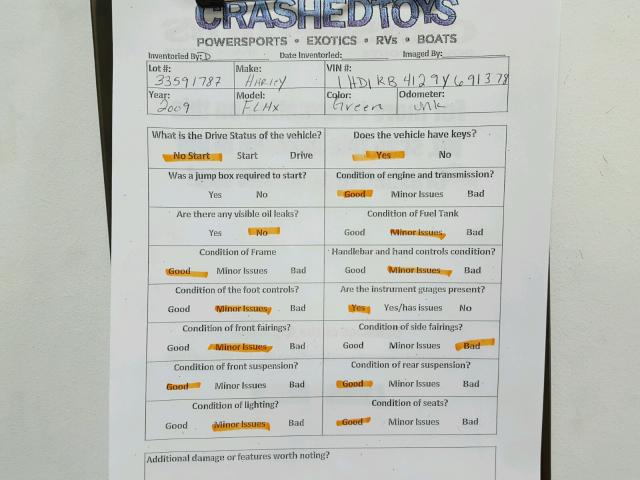 CRASHEDTOYS
POWERSPORTS • EXOTICS • RVs • BOATS
Inventoried By: D Date Inventoried: Imaged By:
Lot #: Make: VIN #:
33591787 Harley 1HD1KB4129Y691378
Year: Model: Color: Odometer:
2009 FLHX Green unk
What is the Drive Status of the vehicle? Does the vehicle have keys?
No Start Start Drive Yes No
Was a jump box required to start? Condition of engine and transmission?
Yes No Good Minor Issues Bad
Are there any visible oil leaks? Condition of Fuel Tank
Yes No Good Minor Issues Bad
Condition of Frame Handlebar and hand controls condition?
Good Minor Issues Bad Good Minor Issues Bad
Condition of the foot controls? Are the instrument guages present?
Good Minor Issues Bad Yes Yes/has issues No
Condition of front fairings? Condition of side fairings?
Good Minor Issues Bad Good Minor Issues Bad
Condition of front suspension? Condition of rear suspension?
Good Minor Issues Bad Good Minor Issues Bad
Condition of lighting? Condition of seats?
Good Minor Issues Bad Good Minor Issues Bad
Additional damage or features worth noting?